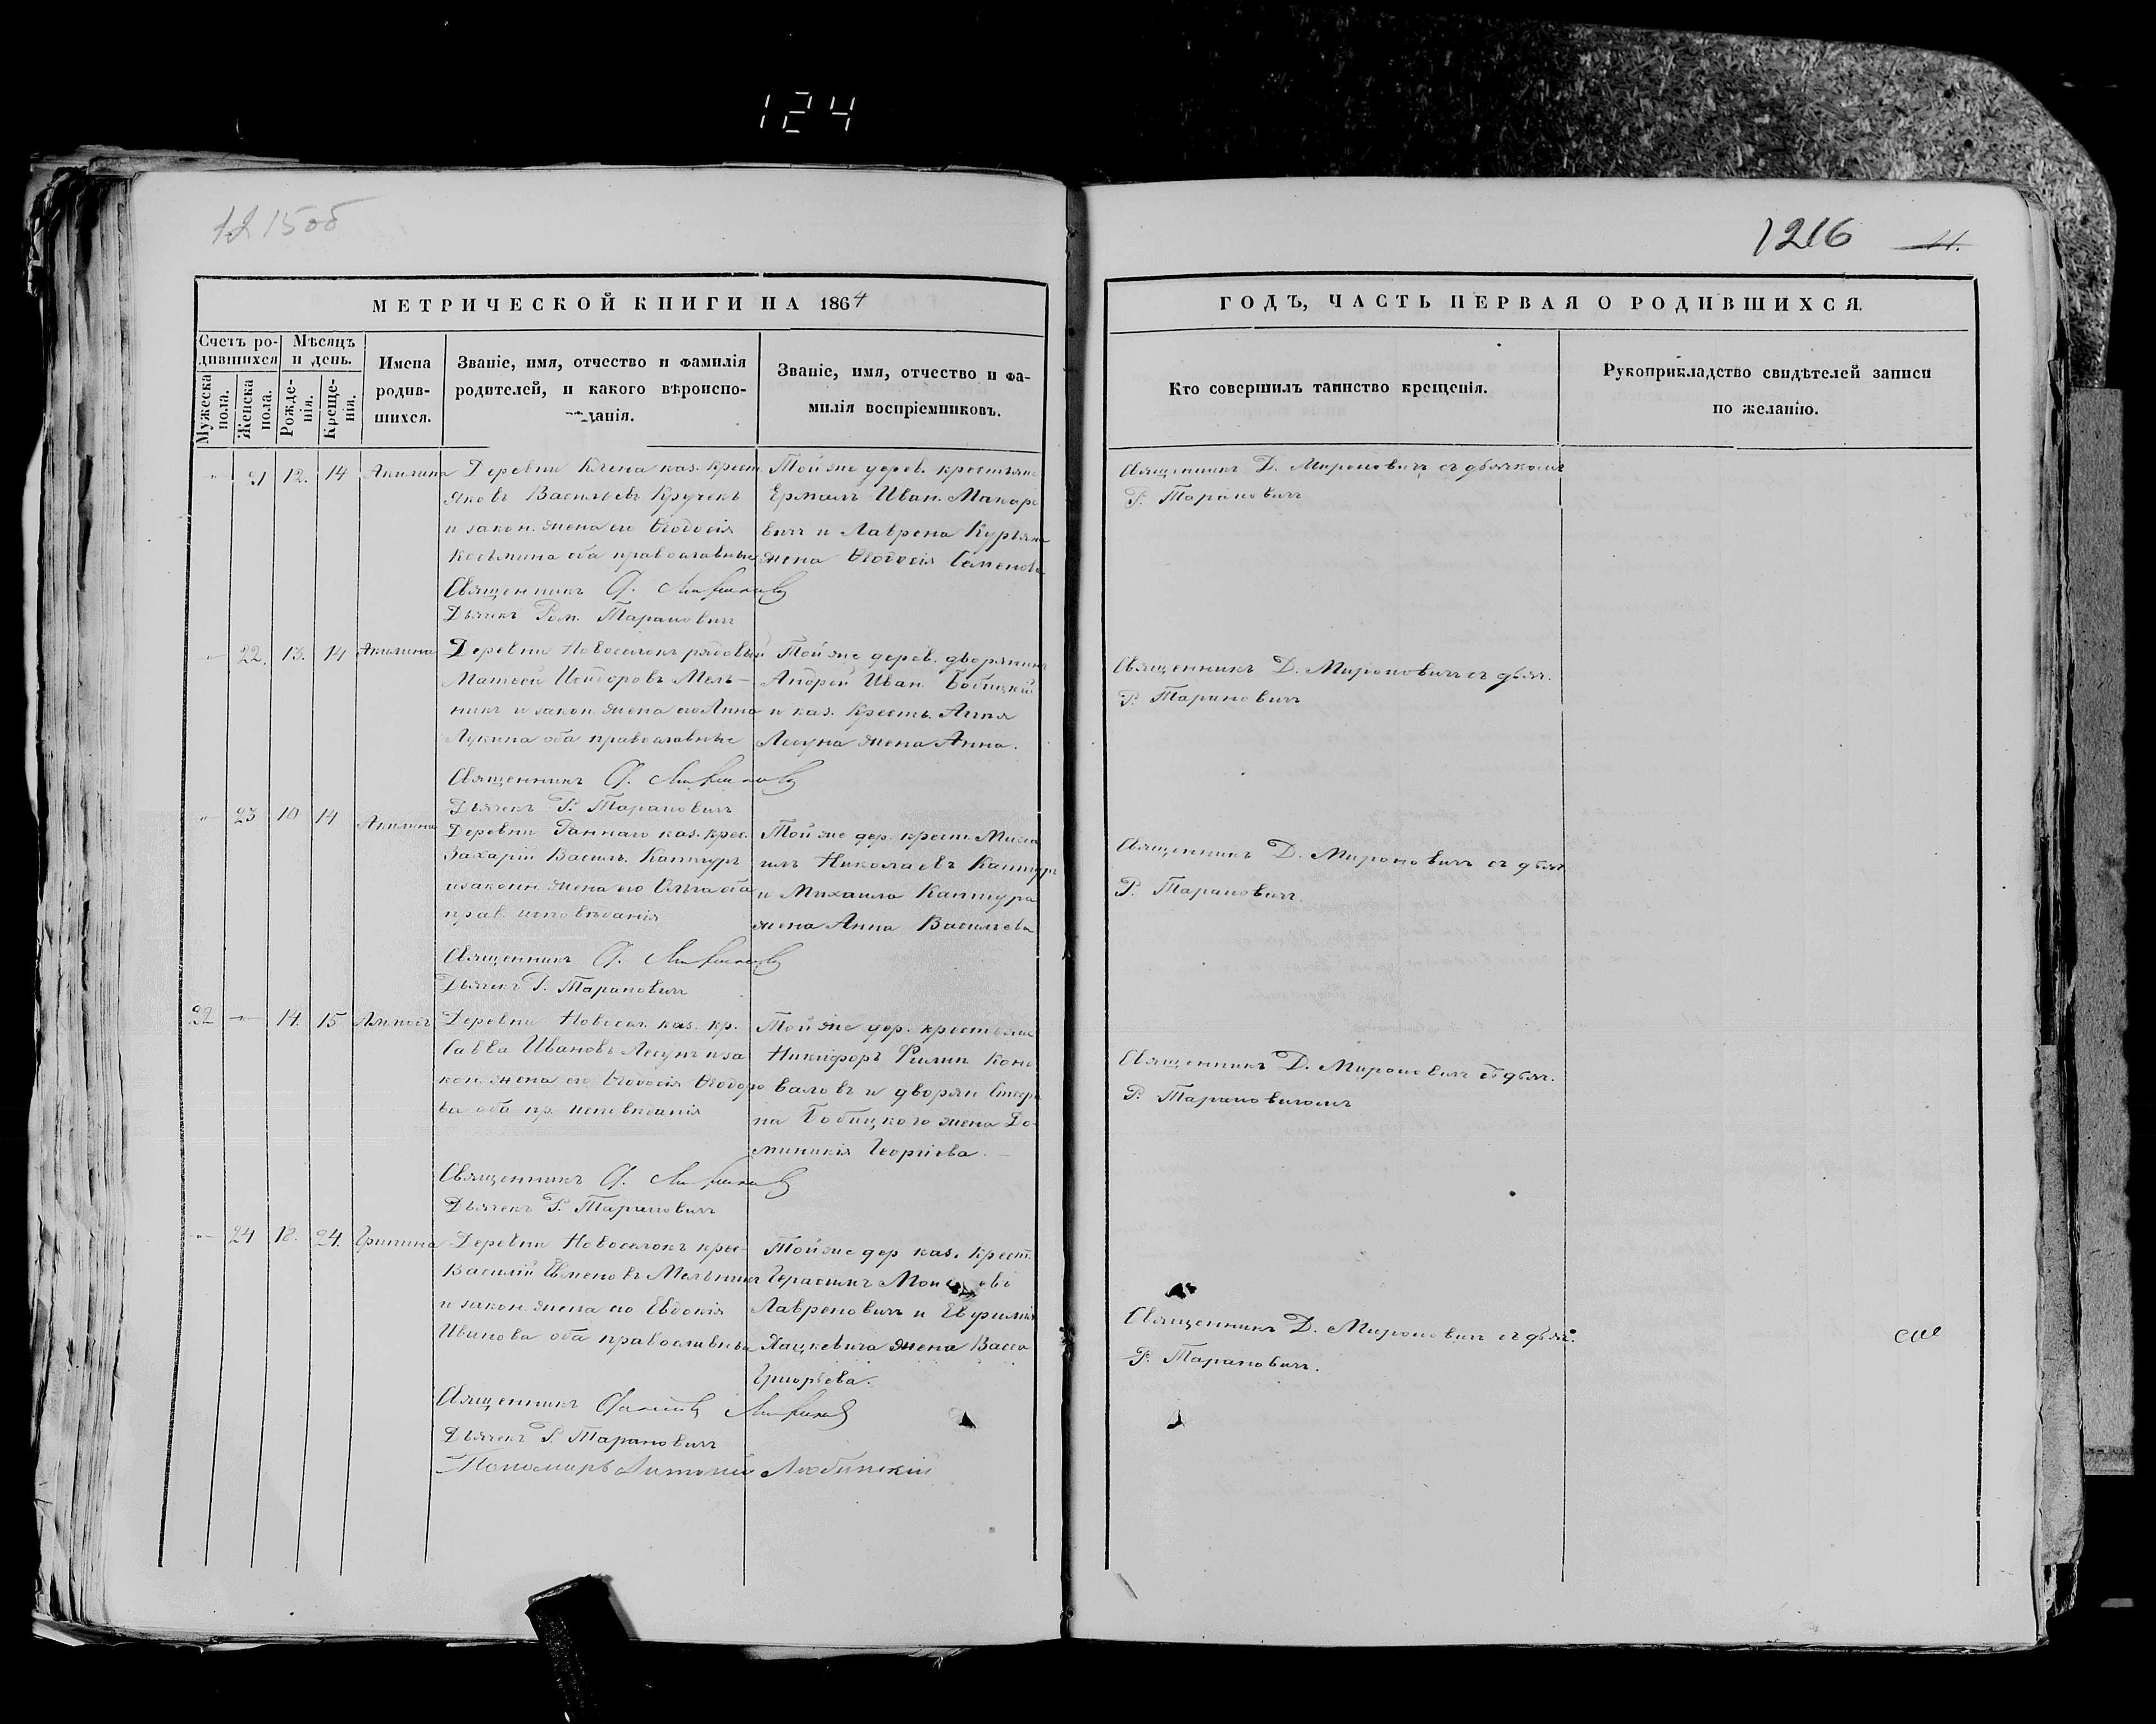 124
1215об
1216
11.
МЕТРИЧЕСКОЙ КНИГИ НА 1864
ГОДЪ, ЧАСТЬ ПЕРВАЯ О РОДИВШИХСЯ.
Счетъ ро-
дившихся
Мужеска
пола.
Женска
пола.
Мѣсяцъ
и день.
Рожде-
нія.
Креще-
нія.
Имена
родив-
шихся.
Званіе, имя, отчество и фамилія
родителей, и какого вѣроиспо-
данія.
Званіе, имя, отчество и фа-
милія воспріемниковъ.
Кто совершилъ таинство крещенія.
Рукоприкладство свидѣтелей записи
по желанію.
21 12. 14 Акилина
Деревни Клена каз. крест.
Яковъ Васильевъ Кручекъ
и закон. жена его Ѳеодосія
Косьмина оба православные
Священникъ
Дьячекъ Ром. Тарановичъ
Той же дерев. крестьяне
Ермалъ Иван. Макаре
вичъ и Лаврена Курьяна
жена Ѳеодосія Семенова
Священникъ Д. Мироновичъ съ дьячкомъ
Р. Тарановичъ
22. 13. 14 Акилина
Деревни Новоселокъ рядовый
Матвей Исидоровъ Мель-
никъ и закон. жена его Анна
Лукина оба православные
Священникъ
Дьячекъ Р. Тарановичъ
Той же дерев. дворянинъ
Андрей Иван. Бобицкій
и каз. крестъ.
жена Анна.
Священникъ Д. Мироновичъ съ дьяч.
Р. Тарановичъ
23 10 14 Акилина
Деревни каз. крес.
Захарій Василь. Каптуръ
и законн. жена его оба
прав. исповѣданія
Священникъ
Дьячекъ Р. Тарановичъ
Той же дер. крест. Миха
илъ Николаевъ Каптуръ
и Михаила Каптура
жена Анна Васильева
Священникъ Д. Мироновичъ съ дьяч
Р. Тарановичъ.
22 14. 15
Деревни Новосел. каз. кр.
Савва Ивановъ и за
кон. жена его Ѳеодосія Ѳеодоро
ва оба пр. исповѣданія
Священникъ
Дьячекъ Р. Тарановичъ
Той же дер. крестьяне
Никифоръ Филип Коно
валовъ и дворян Стефа
на Бобицкого жена До
миникія Георгіева.
Священникъ Д. Мироновичъ съ дьяч.
Р. Тарановичомъ
24 18. 24. Грипина
Деревни Новоселокъ крес-
Василій Евменовъ Мельникъ
и закон. жена его Евдокія
Иванова оба православны
Священникъ
Дьячекъ Р. Тарановичъ
Пономарь Антоній Любинскій
Той же дер каз. крест.
Герасимъ
Лавреновичъ и
Яцкевича жена Васса
Григорьева.
Священникъ Д. Мироновичъ съ дьяч.
Р. Тарановичъ.